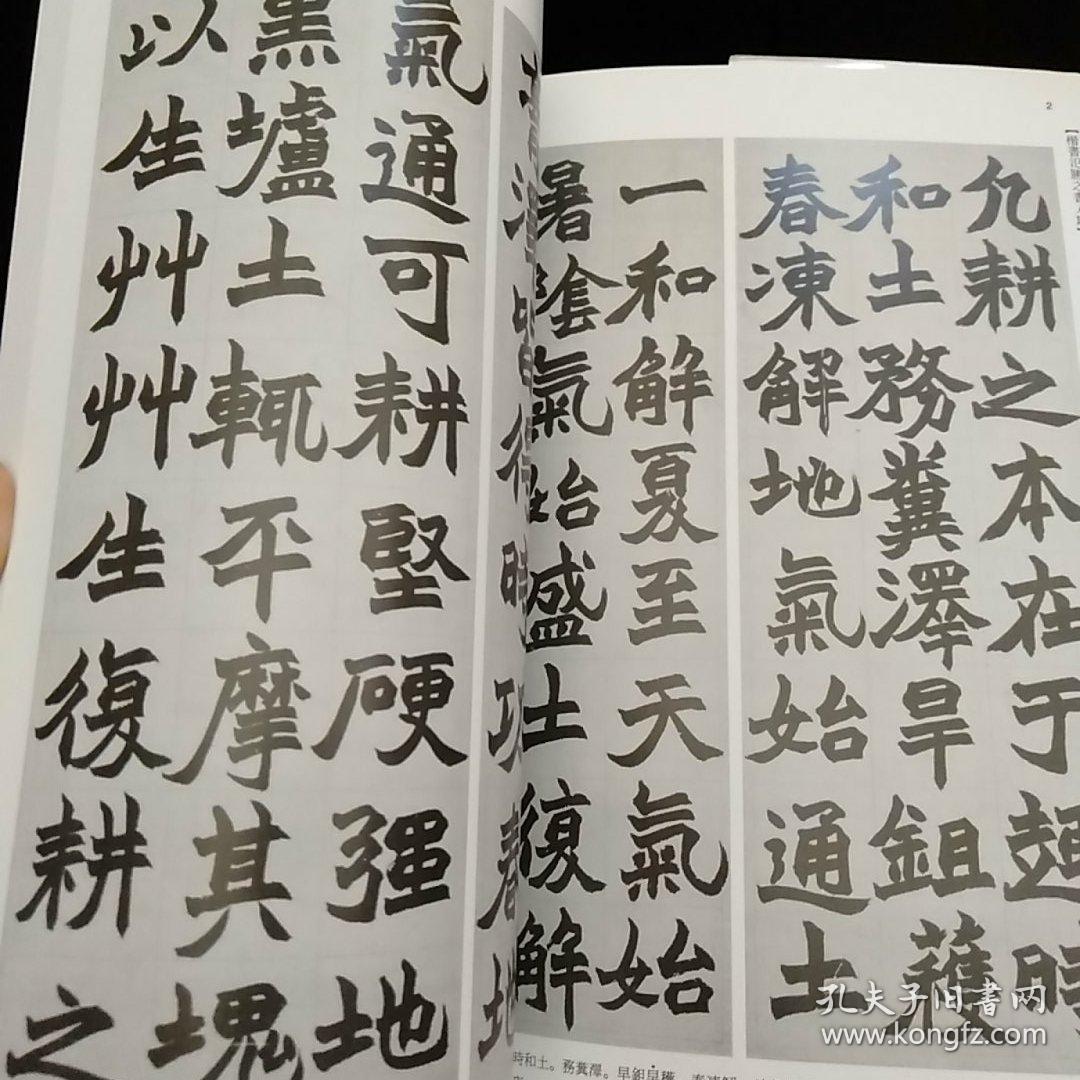 2
凡耕之本在于趣時
和土務糞澤旱鉏穫
春凍解地氣始通土
一和解夏至天氣始
暑陰氣始盛土復解
時和土。務糞澤。早鉏早穫。
氣通可耕堅硬强地
黑壚土輒平摩其塊
以生艸艸生復耕之
孔夫子旧书网
www.kongfz.com